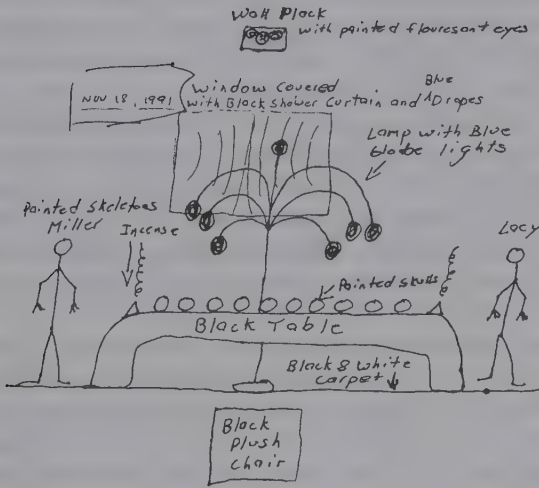 Wall Plack
with painted flouresant eyes
NOV 18, 1991
Window Covered
with Black Shower Curtain and Blue Drapes
Lamp with Blue
Globe lights
Painted Skeletons
Miller
Incense
Lacy
Painted skulls
Black Table
Black & White
Carpet
Black
Plush
Chair